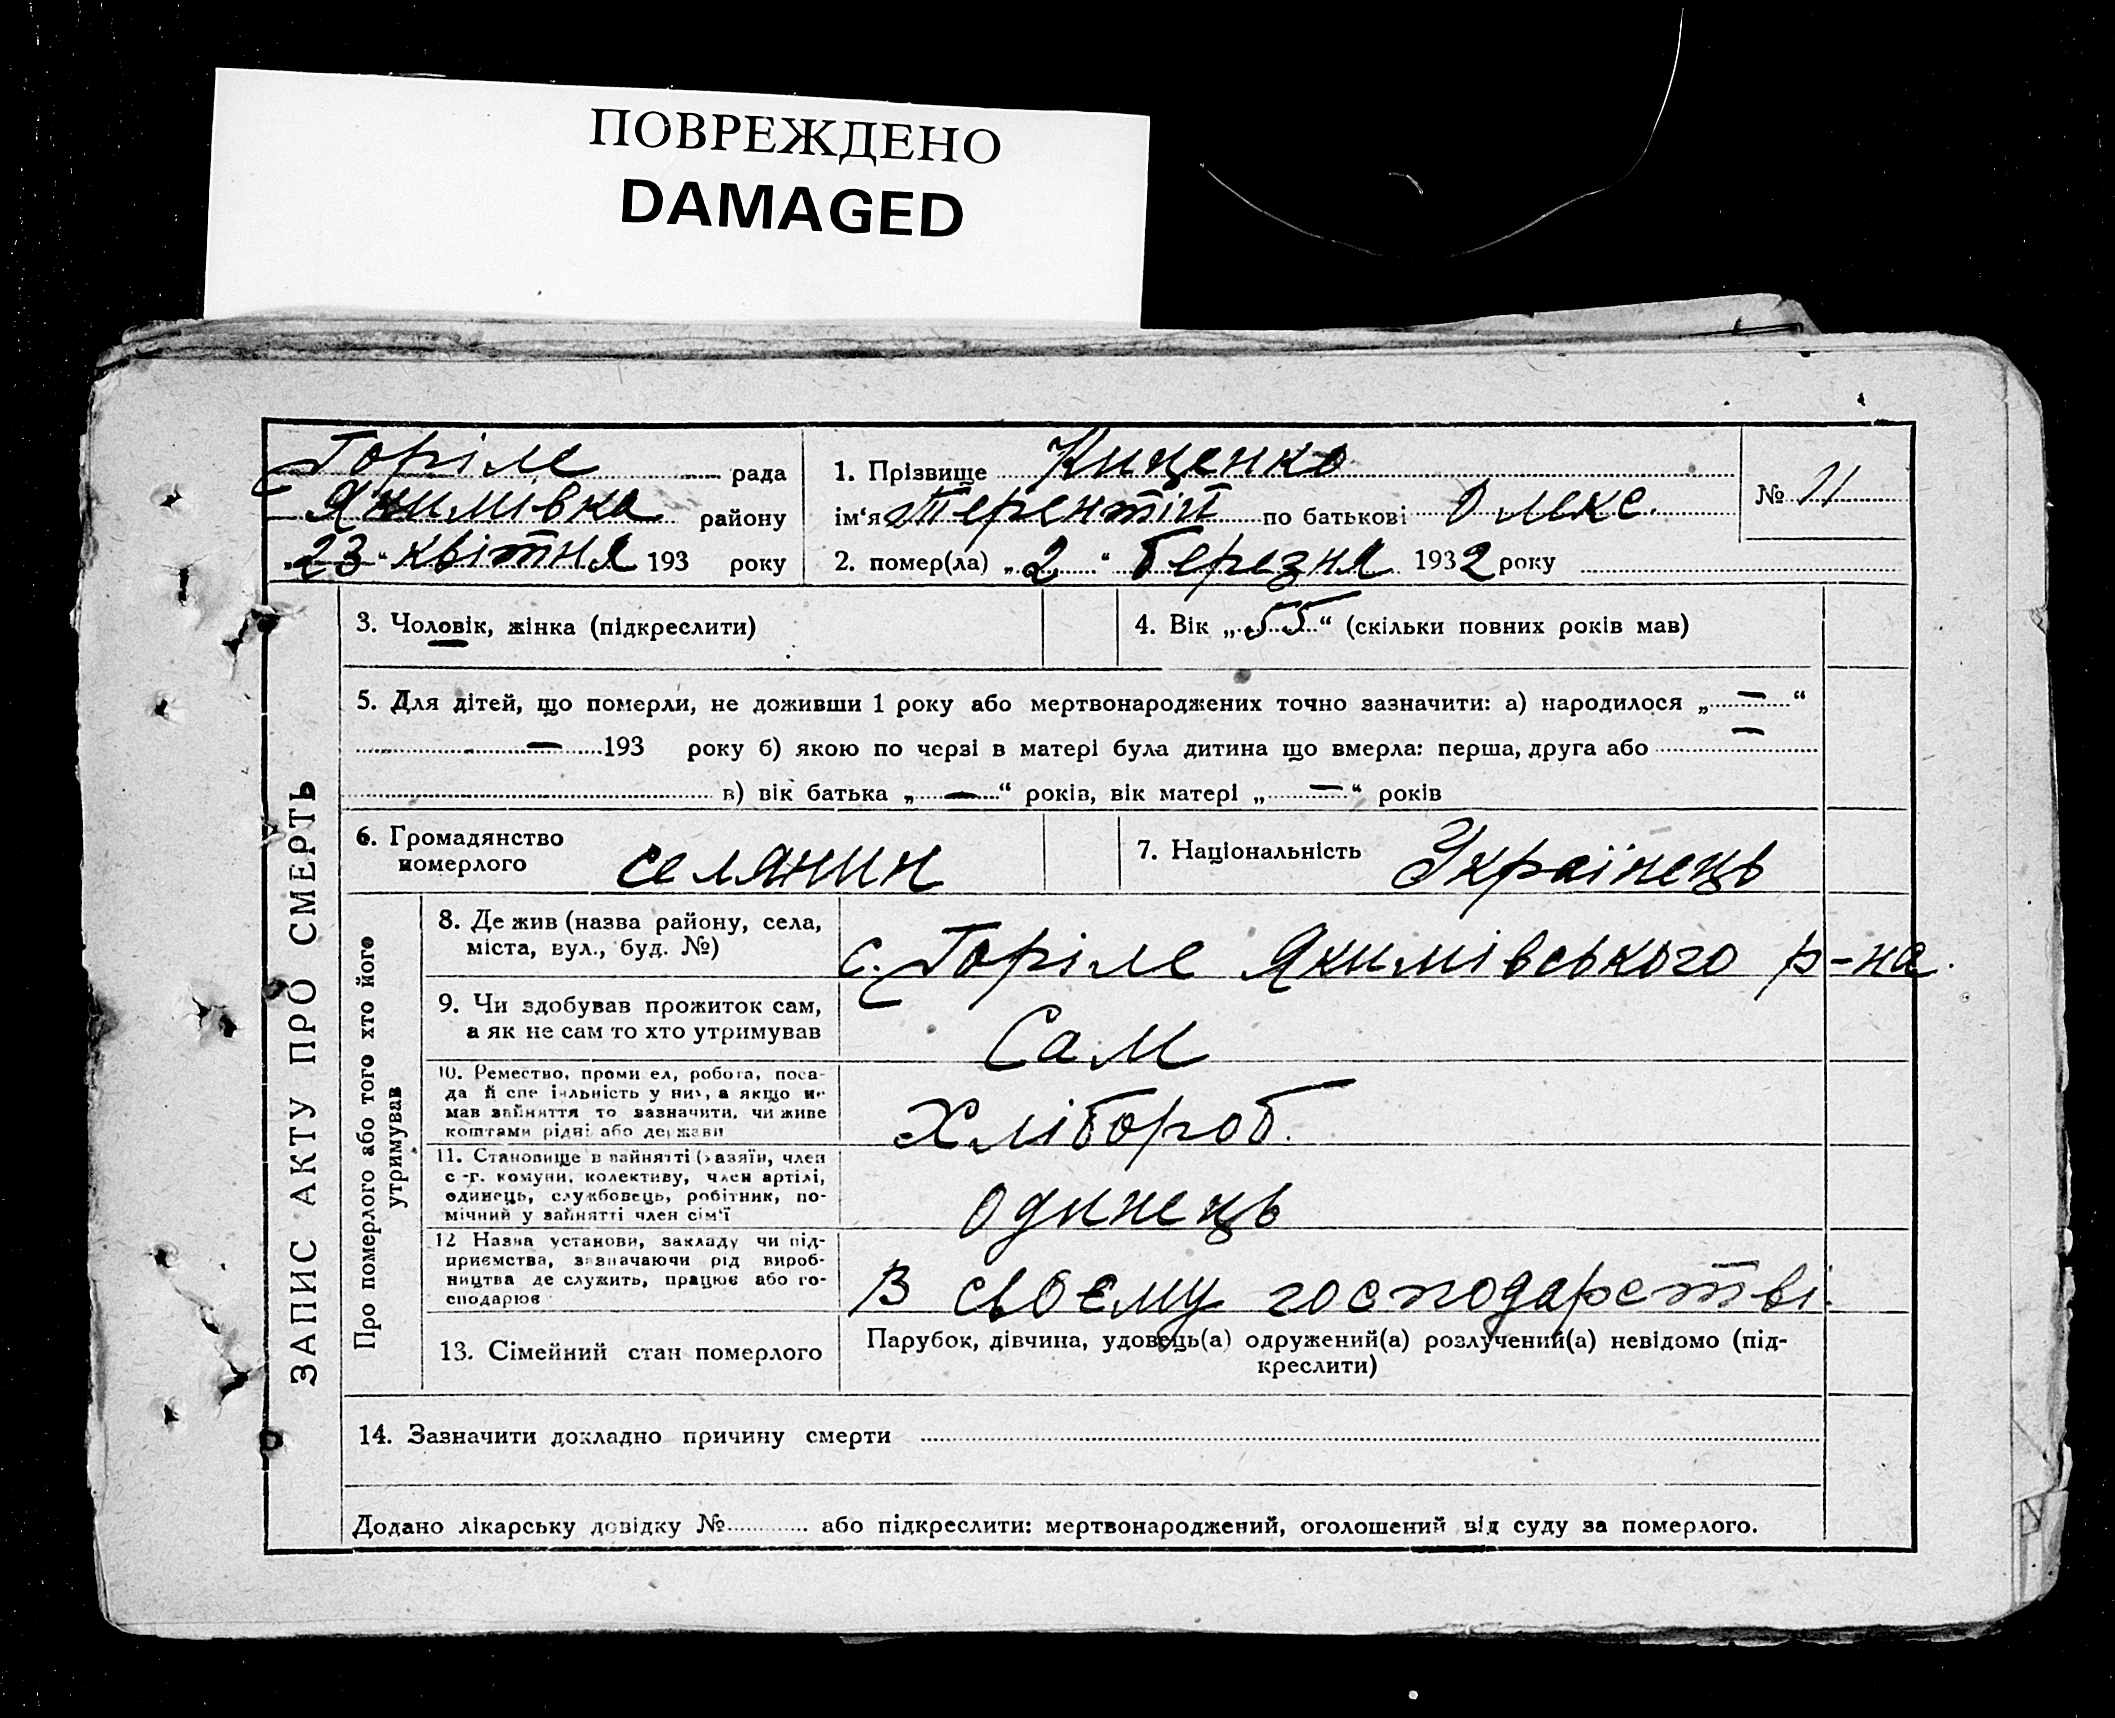 ПОВРЕЖДЕНО
DAMAGED
Горіле рада
Якимівка району
„23“ квітня 193 року
1. Прізвище Кищенко
ім‘я Терентій по батькові Олекс.
2. помер(ла) „2“ березня 1932 року
№ 11
ЗАПИС АКТУ ПРО СМЕРТЬ
3. Чоловік, жінка (підкреслити)
4. Вік „55“ (скільки повних років мав)
5. Для дітей, що померли, не доживши 1 року або мертвонароджених точно зазначити: а) народилося „—“
— 193 року б) якою по черзі в матері була дитина що вмерла: перша, друга або —
в) вік батька „—“ років, вік матері „—“ років
6. Громадянство
померлого
селянин
7. Національність Українець
Про померлого або того хто його
утримував
8. Де жив (назва району, села,
міста, вул., буд. №)
с. Горіле Якимівського р-на.
9. Чи здобував прожиток сам,
а як не сам то хто утримував
Сам
10. Ремество, проми ел, робота, поса-
да й спе іальність у них, а якщо не
мав зайняття то зазначити, чи живе
коштами рідні або держави
Хлібороб.
11. Становище в зайнятті (хазяїн, член
с-г. комуни, колективу, член артілі,
одинець, службовець, робітник, по-
мічний у зайнятті член сім‘ї
одинець
12 Назва установи, закладу чи під-
приємства, зазначаючи рід вироб-
ництва де служить, працює або го-
сподарює
В своєму господарстві.
13. Сімейний стан померлого
Парубок, дівчина, удовець(а) одружений(а) розлучений(а) невідомо (під-
креслити)
14. Зазначити докладно причину смерти
Додано лікарську довідку № або підкреслити: мертвонароджений, оголошений від суду за померлого.